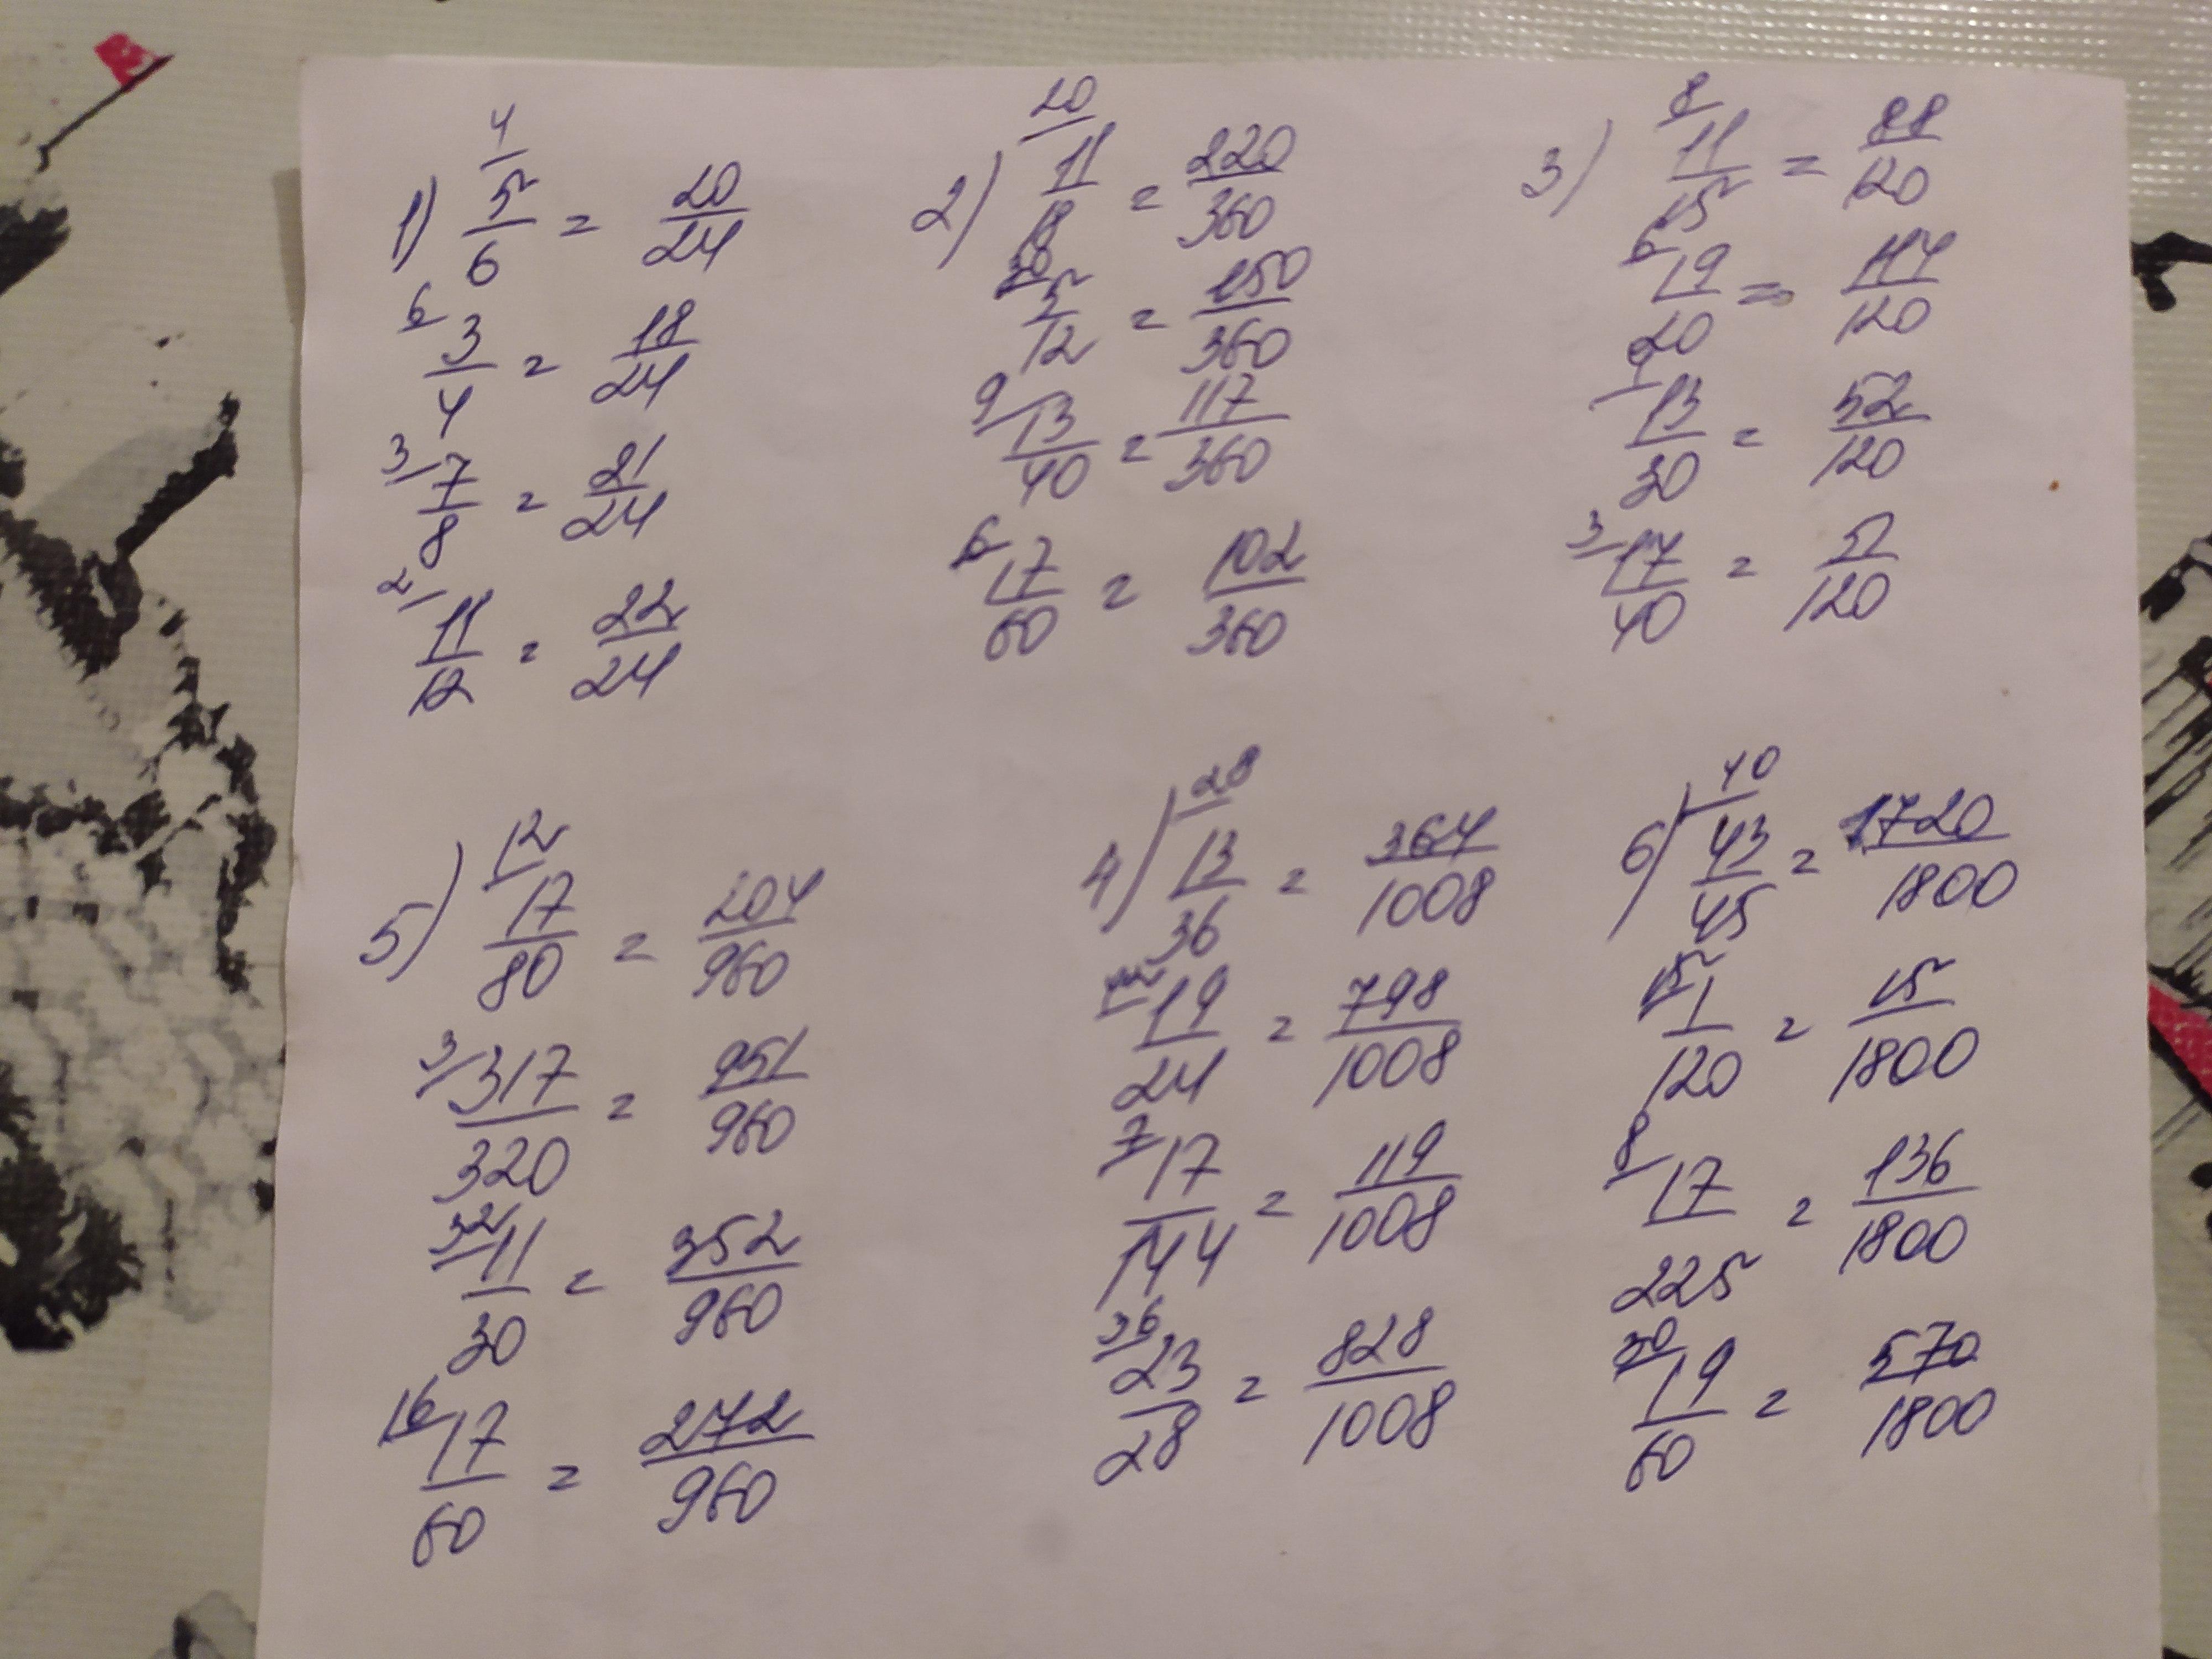 1) 4/ 5/6 = 20/24
6/ 3/4 = 18/24
3/ 7/8 = 21/24
2/ 11/12 = 22/24
2) 20/ 11/18 = 220/360
30/ 5/12 = 150/360
9/ 13/40 = 117/360
6/ 17/60 = 102/360
3) 8/ 11/15 = 88/120
6/ 19/20 = 114/120
4/ 13/30 = 52/120
3/ 17/40 = 51/120
5) 12/ 17/80 = 204/960
3/ 317/320 = 951/960
32/ 11/30 = 352/960
16/ 17/60 = 272/960
4) 28/ 13/36 = 364/1008
42/ 19/24 = 798/1008
7/ 17/144 = 119/1008
36/ 23/28 = 828/1008
6) 40/ 43/45 = 1720/1800
15/ 1/120 = 15/1800
8/ 17/225 = 136/1800
30/ 19/60 = 570/1800